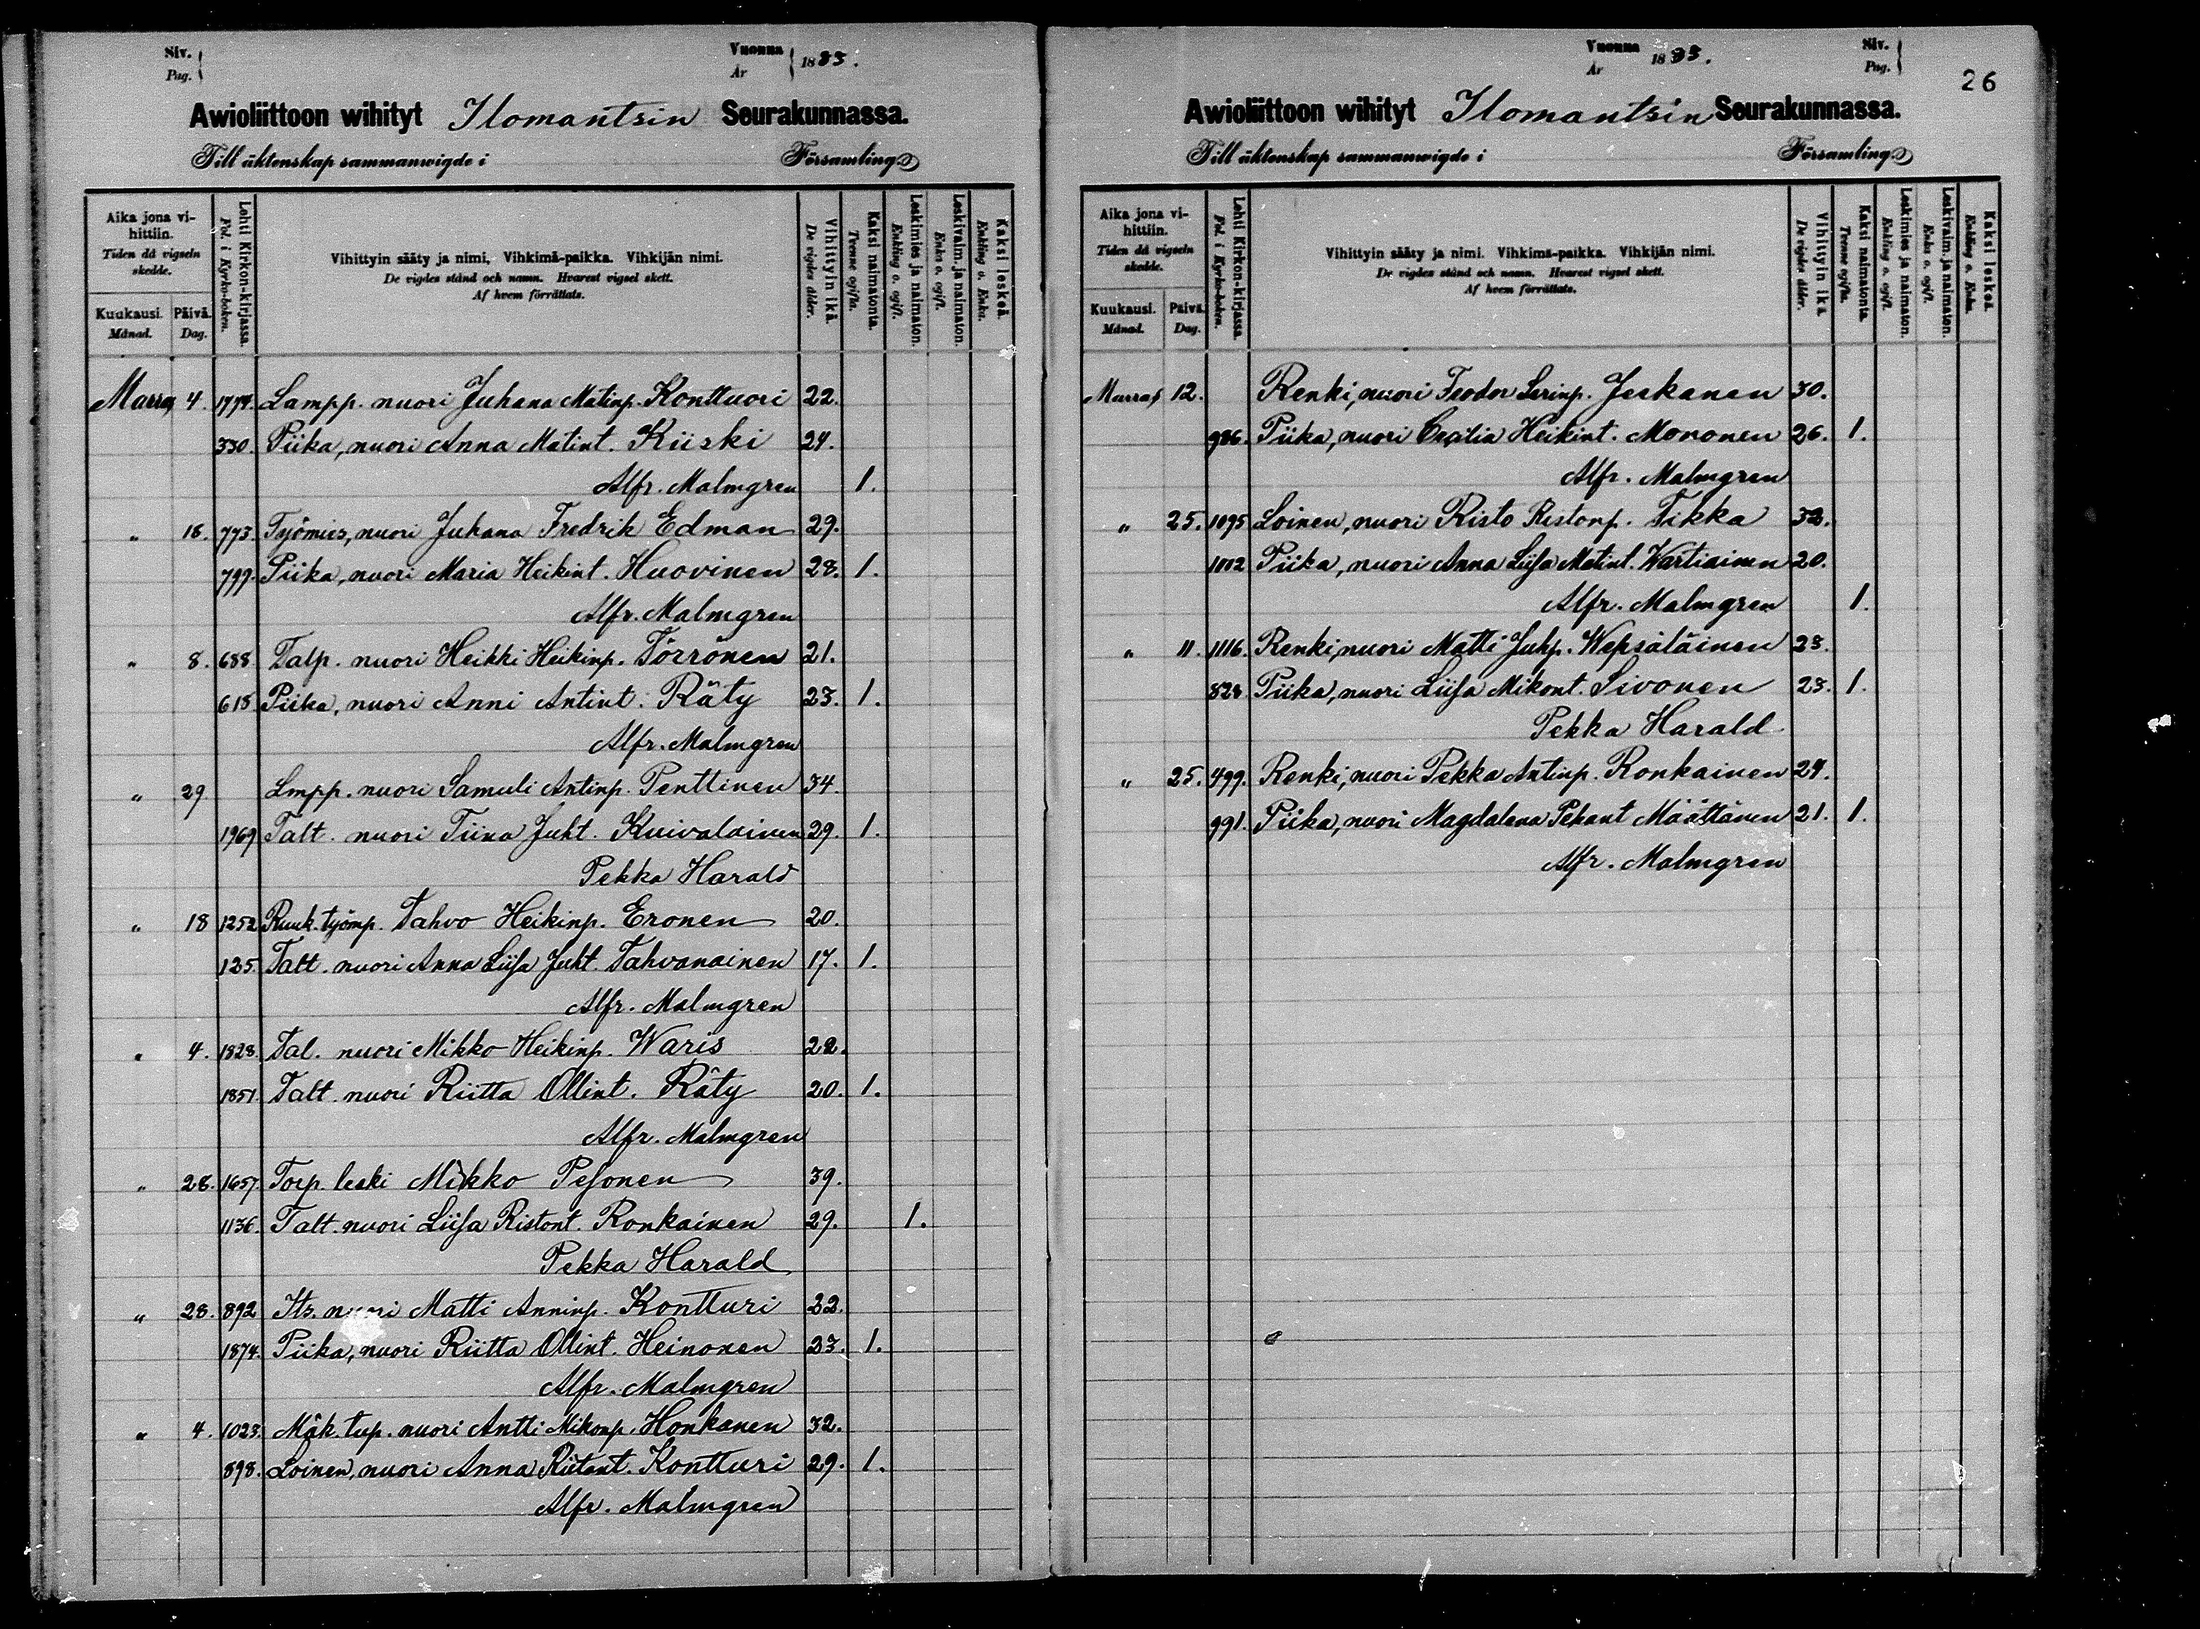 Siv.
Pag.
Vuonna
År
1883.
Awioliittoon wihityt Ilomantsin Seurakunnassa.
Till äktenskap sammanwigde i Församling.
Aika jona vihittiin.
Tiden då vigseln skedde.
Kuukausi. Månad.
Päivä. Dag.
Lehti Kirkon-kirjassa.
Fol. i Kyrko-boken.
Vihittyin sääty ja nimi, Vihkimä-paikka. Vihkijän nimi.
De vigdes stånd och namn. Hvarest vigsel skett.
Af hvem förrättats.
Vihittyin ikä.
De vigdes ålder.
Kaksi naimatonta.
Tvenne ogifta.
Leskimies ja naimaton.
Enkling o. ogift.
Leskivaim. ja naimaton.
Enka o. ogift.
Kaksi leskeä.
Enkling o. Enka.
Marrask 4. 1774. Lampp. nuori Juhana Matinp. Konttuori 22.
330. Piika, nuori Anna Matint. Kiiski 24.
Alfr. Malmgren 1.
" 18. 773. Työmies, nuori Juhana Fredrik Edman 29.
799. Piika, nuori Maria Heikint. Huovinen 28. 1.
Alfr. Malmgren
" 8. 688. Talp. nuori Heikki Heikinp. Törrönen 21.
618. Piika, nuori Anni Antint. Räty 23. 1.
Alfr. Malmgren
" 29 Lmpp. nuori Samuli Antinp. Penttinen 34.
1969 Talt. nuori Tiina Juht. Kuivalainen 29. 1.
Pekka Harald
" 18 1252 Ruuk. työmp. Tahvo Heikinp. Eronen 20.
125. Talt. nuori Anna Liisa Juht. Tahvanainen 17. 1.
Alfr. Malmgren
" 4. 1828. Tal. nuori Mikko Heikinp. Waris 22.
1851. Talt. nuori Riitta Ollint. Räty 20. 1.
Alfr. Malmgren
" 28. 1657. Torp. leski Mikko Pesonen 39.
1136. Talt. nuori Liisa Ristont. Ronkainen 29. 1.
Pekka Harald
" 28. 892 Its. nuori Matti Anninp. Kontturi 22.
1874. Piika, nuori Riitta Ollint. Heinonen 23. 1.
Alfr. Malmgren
" 4. 1023. Mäk. tup. nuori Antti Mikonp. Honkanen 32.
898. Loinen, nuori Anna Riitant. Kontturi 29. 1.
Alfr. Malmgren
Vuonna
År
1883.
Siv.
Pag.
26
Awioliittoon wihityt Ilomantsin Seurakunnassa.
Till äktenskap sammanwigde i Församling.
Aika jona vihittiin.
Tiden då vigseln skedde.
Kuukausi. Månad.
Päivä. Dag.
Lehti Kirkon-kirjassa.
Fol. i Kyrko-boken.
Vihittyin sääty ja nimi. Vihkimä-paikka. Vihkijän nimi.
De vigdes stånd och namn. Hvarest vigsel skett.
Af hvem förrättats.
Vihittyin ikä.
De vigdes ålder.
Kaksi naimatonta.
Tvenne ogifta.
Leskimies ja naimaton.
Enkling o. ogift.
Leskivaim. ja naimaton.
Enka o. ogift.
Kaksi leskeä.
Enkling o. Enka.
Marrask 12. Renki, nuori Feodor Jeskanen 30.
986. Piika, nuori Cecilia Heikint. Mononen 26. 1.
Alfr. Malmgren
" 25. 1095 Loinen, nuori Risto Ristonp. Tikka 32.
1002 Piika, nuori Anna Liisa Matint. Wartiainen 20.
Alfr. Malmgren 1.
" 11. 1116. Renki, nuori Matti Juhp. Wepsäläinen 23.
828. Piika, nuori Liisa Mikont. Sivonen 23. 1.
Pekka Harald
" 25. 499. Renki, nuori Pekka Antinp. Ronkainen 24.
991. Piika, nuori Magdalena Pekant Määttänen 21. 1.
Alfr. Malmgren